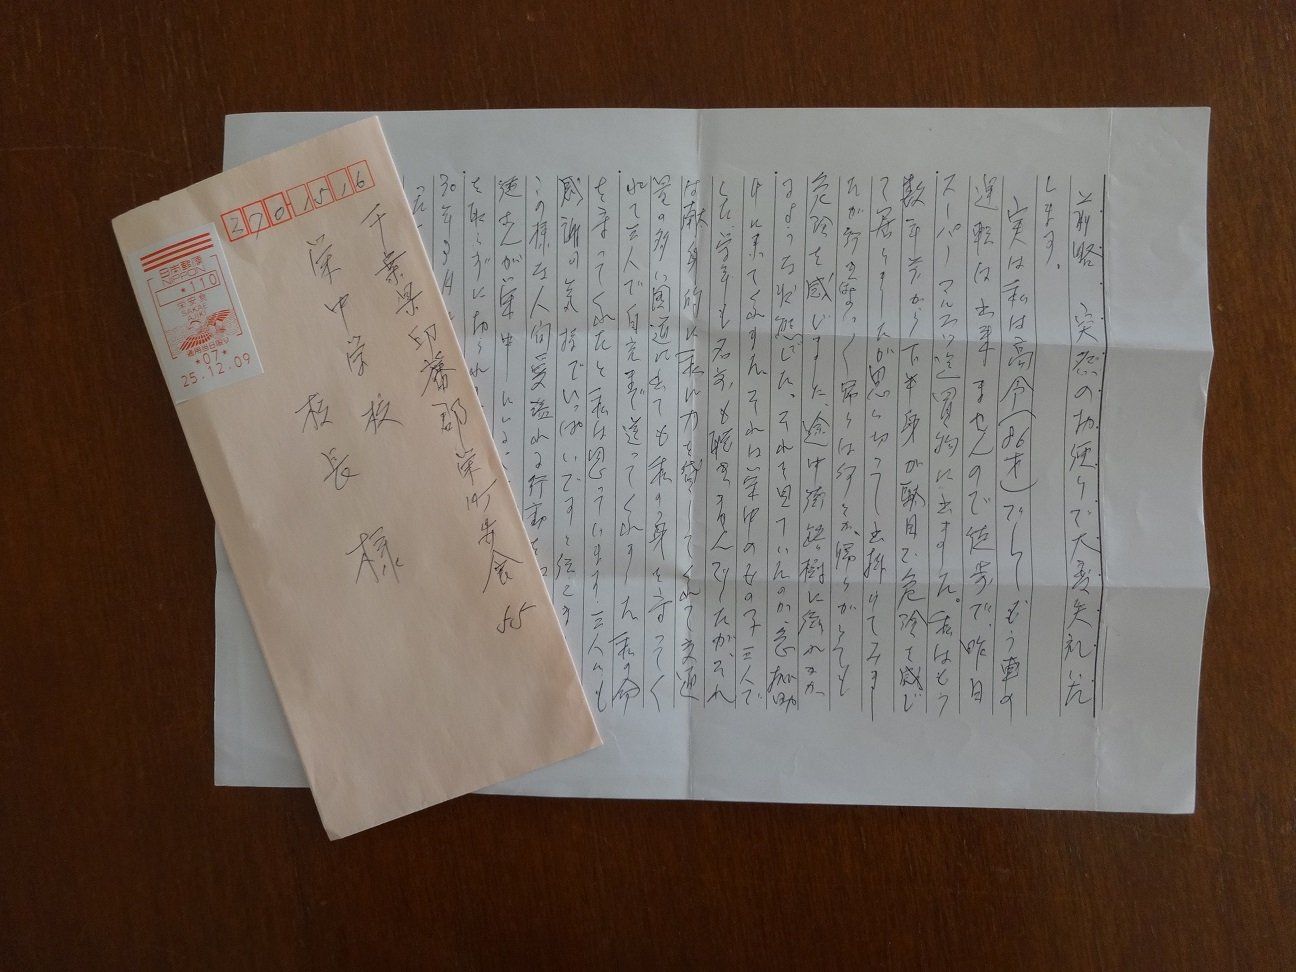 前略 突然のお便りで大変失礼いた
します。
実は私は高令(86才)でしてもう車の
運転は出来ませんので徒歩で、昨日
スーパーマルエツ迄買物に出ました。私はもう
数年前から下半身が駄目で危険を感じ
て居りましたが思い切って出掛けてみまし
たが行きは良く帰りは何とか帰りがとても
危険を感じました、途中街路樹に
るような状態でした、それを見ていたのか、急拠助
けに来てくれました それは栄中の女の子三人で
した、学年も名前も聴きませんでしたが、それ
は献身的に私に力を貸してくれて交通
量の多い国道に出ても私の身を守ってく
れて三人で自宅まで送ってくれました、私の命
を守ってくれたと私は思っています。三人にも
感謝の気持でいっぱいですと伝え
この様な人間愛溢れる行動を
徒さんが栄中にいる
を取らずに
30年
った
270 1516
千葉県印旛郡栄町安食
515
栄中学校
校長 様
日本郵便
NIPPON
*110
安食
SAKAE
AJIKI
通用当日限り
*07*
25.12.09